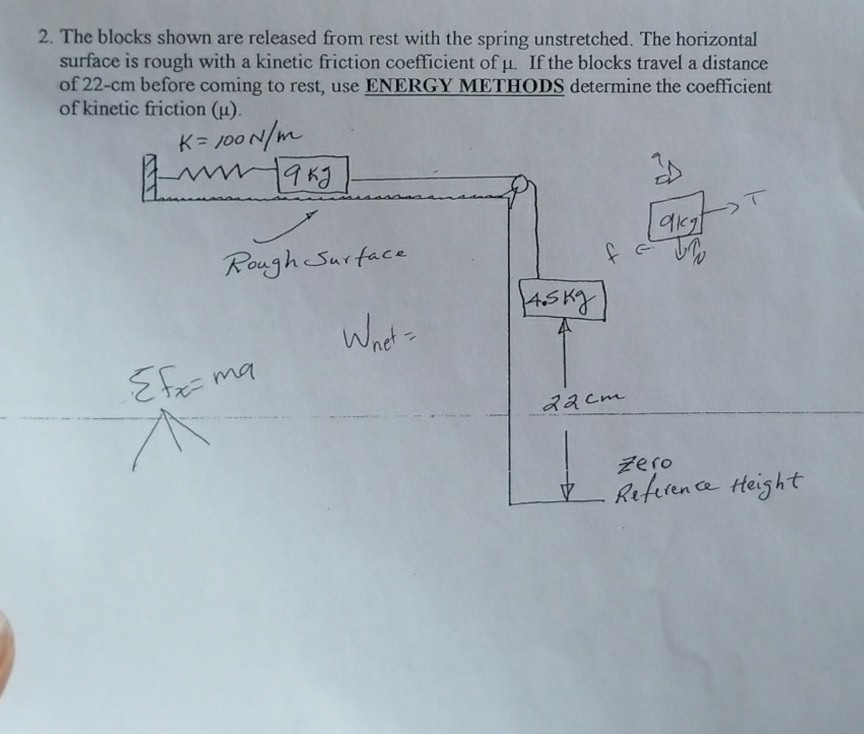 2. The blocks shown are released from rest with the spring unstretched. The horizontal
surface is rough with a kinetic friction coefficient of μ. If the blocks travel a distance
of 22-cm before coming to rest, use ENERGY METHODS determine the coefficient
of kinetic friction (μ).
K = 100 N/m
9 Kg
Rough Surface
4.5 Kg
22 cm
Zero
Reference Height
9kg
T
f
Wnet =
Σfx = ma